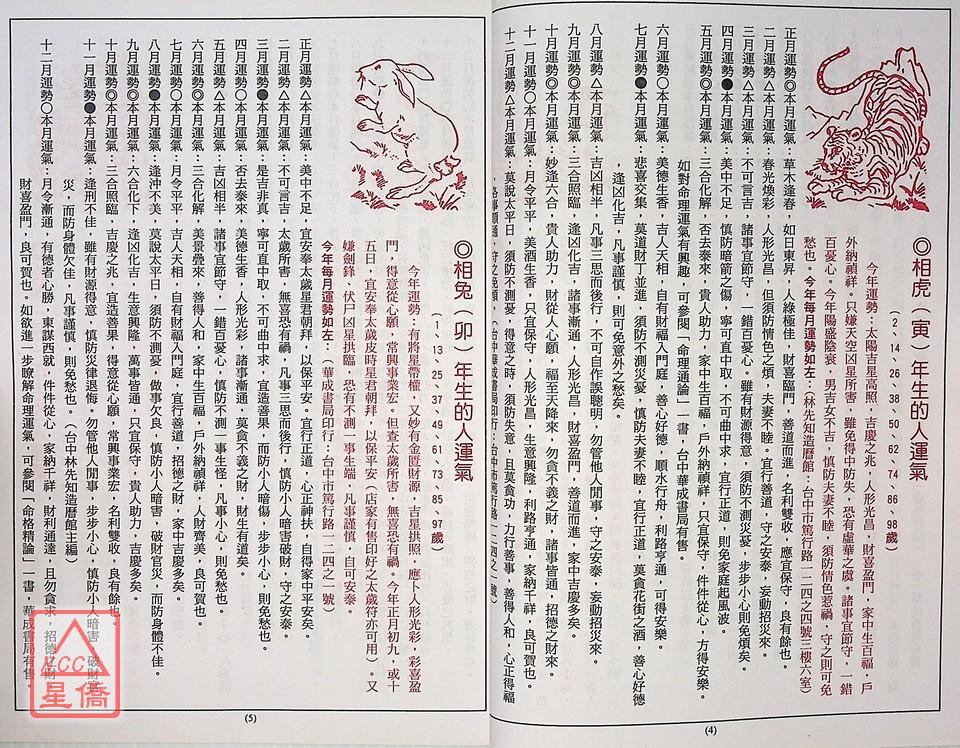 ◎相虎（寅）年生的人運氣
（2、14、26、38、50、62、74、86、98歲）
今年運勢：太陽吉星高照，吉慶之兆，人形光昌，財喜盈門，家中生百福，戶
外納禎祥。只嫌天空凶星所害，雖免得中防失，恐有虛華之虞。諸事宜節守，一錯
百憂心。今年陽盛陰衰，男吉女不吉，慎防夫妻不睦，須防情色惹禍，守之則可免
愁也。今年每月運勢如左：（林先知造曆館：台中市篤行路一二四之四號三樓六室）
正月運勢◎本月運氣：草木逢春，如日東昇，人緣極佳，財喜臨門，善道而進，名利雙收，應宜保守，良有餘也。
二月運勢◎本月運氣：春光煥彩，人形光昌，但須防情色之煩，夫妻不睦。宜行善道，守之安泰，妄動招災來。
三月運勢△本月運氣：不可言吉，諸事宜節守，一錯百憂心。雖有財源得意，須防不測災憂，步步小心則免煩矣。
四月運勢●本月運氣：美中不足，慎防暗箭之傷，寧可直中取，不可曲中求，宜行正道，則免家庭起風波。
五月運勢◎本月運氣：三合化解，否去泰來，貴人助力，家中生百福，戶外納禎祥，只宜保守，件件從心，方得安樂。
如對命理運氣有興趣，可參閱「命理通論」一書，台中華成書局有售。
六月運勢○本月運氣：美德生香，吉人天相，自有財福入門庭，善心好德，順水行舟，利路亨通，可得安樂。
七月運勢●本月運氣：悲喜交集，莫道財丁並進，須防不測災憂，慎防夫妻不睦，宜行正道，莫貪花街之酒，善心好德
，逢凶化吉，凡事謹慎，則可免意外之愁矣。
八月運勢△本月運氣：吉凶相半，凡事三思而後行，不可自作誤聰明，勿管他人閒事，守之安泰，妄動招災來。
九月運勢◎本月運氣：三合照臨，逢凶化吉，諸事漸通，人形光昌，財喜鬥門，善道而進，家中吉慶多矣。
十月運勢◎本月運氣：妙逢六合，貴人助力，財從人心願，福至天降來，勿貪不義之財，諸事皆通，招德之財來。
十一月運勢○本月運氣：月令平平，美酒生香，只宜保守，人形光昌，生意興隆，利路亨通，家納千祥，良可賀也。
十二月運勢△本月運氣：莫說太平日，須防不測憂，得意之時，須防失意，且莫貪功，力行善事，善得人和，心正得福
◎相兔（卯）年生的人運氣
（1、13、25、37、49、61、73、85、97歲）
今年運勢：有將星帶權，又妙有金匱財源，吉星拱照，應卜人形光彩，彩喜盈
門，得意從心願，常興事業宏。但查太歲所害，無喜恐有禍。今年正月初九，或十
五日，宜安奉太歲皮時星君朝拜，以保平安（店家有售印好之太歲符亦可用）。又
嫌劍鋒、伏尸凶星拱臨，恐有不測一事生端，凡事謹慎，自可安泰。
今年每月運勢如左：（華成書局印行：台中市篤行路一二四之一號）
正月運勢△本月運氣：美中不足，宜安奉太歲星君朝拜，以保平安。宜行正道，心正神扶，自得家中平安矣。
二月運勢△本月運氣：不可言吉，太歲所害，無喜恐有禍，凡事三思而後行，慎防小人暗害破財，守之安泰。
三月運勢●本月運氣：是吉非真，寧可直中取，不可曲中求，宜造善果，而防小人暗傷，步步小心，則免愁也。
四月運勢○本月運氣：否去泰來，美德生香，人形光彩，諸事漸通，莫貪不義之財，財生有道矣。
五月運勢△本月運氣：吉凶相半，諸事宜節守，一錯百憂心，慎防不測一事生怪，凡事小心，則免愁也。
六月運勢◎本月運氣：三合化解，美景疊來，善得人和，家中生百福，戶外納禎祥，人財齊美，良可賀也。
七月運勢○本月運氣：月令平平，吉人天相，自有財福入門庭，宜行善道，招德之財，家中吉慶多矣。
八月運勢●本月運氣：逢沖不美，莫說太平日，須防不測憂，做事欠良，慎防小人暗害，破財官災，而防身體不佳。
九月運勢◎本月運氣：六合化下，逢凶化吉，生意興隆，萬事皆通，只宜保守，貴人助力，吉慶多矣。
十月運勢◎本月運氣：三合照臨，吉慶之兆，宜造善果，得意從心願，常興事業宏，名利雙收，良有餘也。
十一月運勢●本月運氣：逢刑不佳，雖有財源得意，慎防災律退悔。勿管他人閒事，步步小心，慎防小人暗害，破財官
災，而防身體欠佳，凡事謹慎，則免愁也。（台中林先知造曆館主編）
十二月運勢○本月運氣：月令漸通，有德者心勝，東謀西就，件件從心，家納千祥，財利通達，且勿貪求，招德之財，
財喜盈門，良可賀也。如欲進一步瞭解命理運氣，可參閱「命格精論」一書，華成書局有售。
(5)
(4)
NCC
星僑